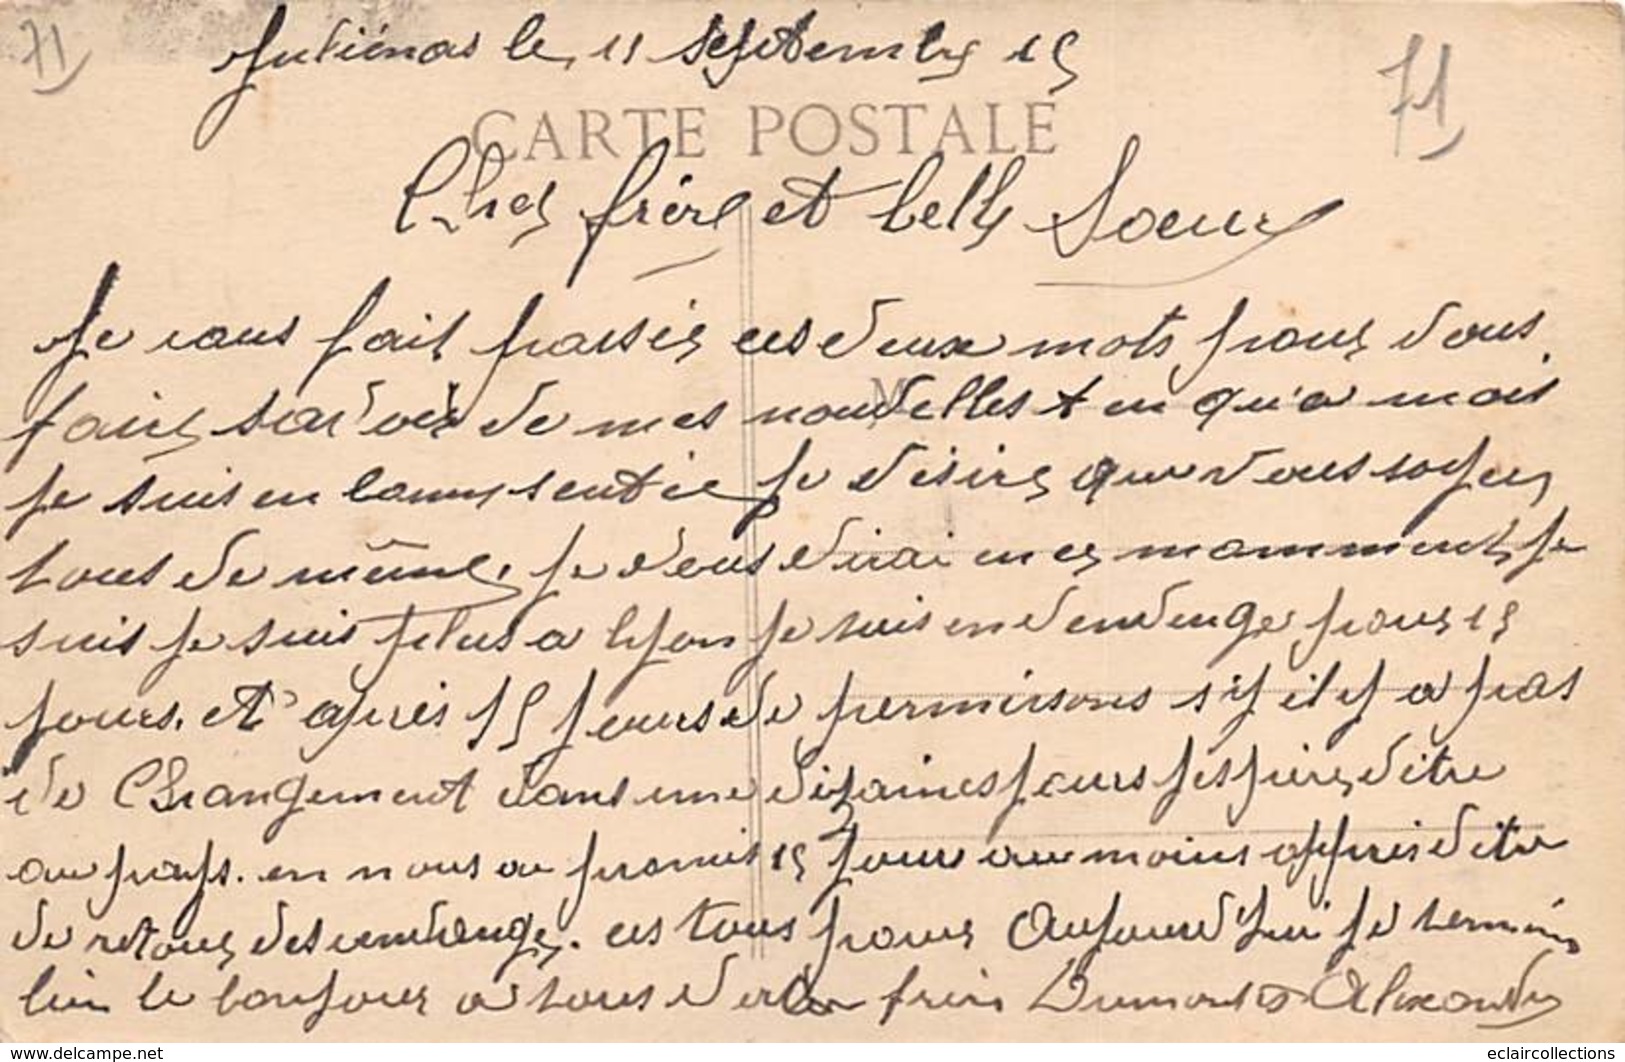 71
Juliénas le 11 septembre 15
71
CARTE POSTALE
Cher frère et belle Soeur
Je vous fait passer ces deux mots pour vous
faire savoir de mes nouvelles en qu'a mois
je suis en bonne sentée je désire que vous soyer
tous de même. je vous dirai en ce momment je
suis je suis plus a lyon je suis en vendenge pour 15
jours. et après 15 jours de permissons s'y il y a pas
de changement dans une dizaines jours j'espère d'être
au pays. en nous a promis 15 jour au moins apprès d'être
de retour des vendanges. ces tous pour Aujourd'hui je termine
bien le bonjour a tous votre frère Dumont Alexandre
www.delcampe.net
eclaircollections